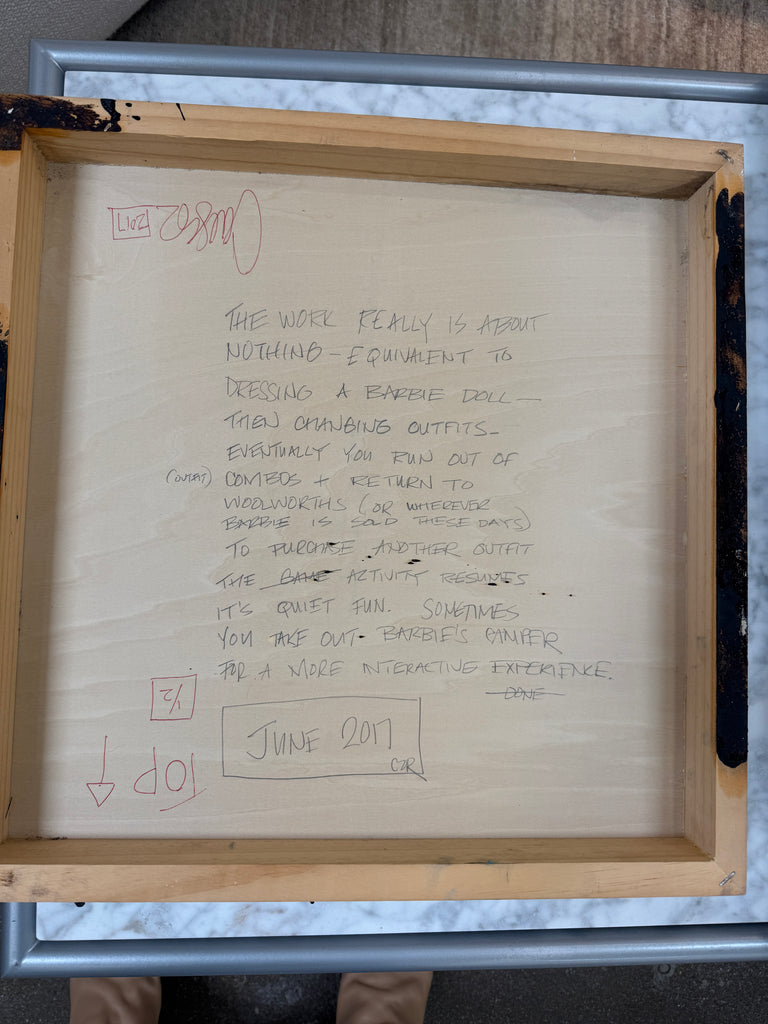 2017
THE WORK REALLY IS ABOUT
NOTHING – EQUIVALENT TO
DRESSING A BARBIE DOLL —
THEN CHANGING OUTFITS –
EVENTUALLY YOU RUN OUT OF
(OUTFIT) COMBOS + RETURN TO
WOOLWORTHS (OR WHEREVER
BARBIE IS SOLD THESE DAYS)
TO PURCHASE ANOTHER OUTFIT
THE GAME ACTIVITY RESUMES
IT'S QUIET FUN. SOMETIMES
YOU TAKE OUT BARBIE'S CAMPER
FOR A MORE INTERACTIVE EXPERIENCE.
DONE
JUNE 2017
CZR
1/2
TOP